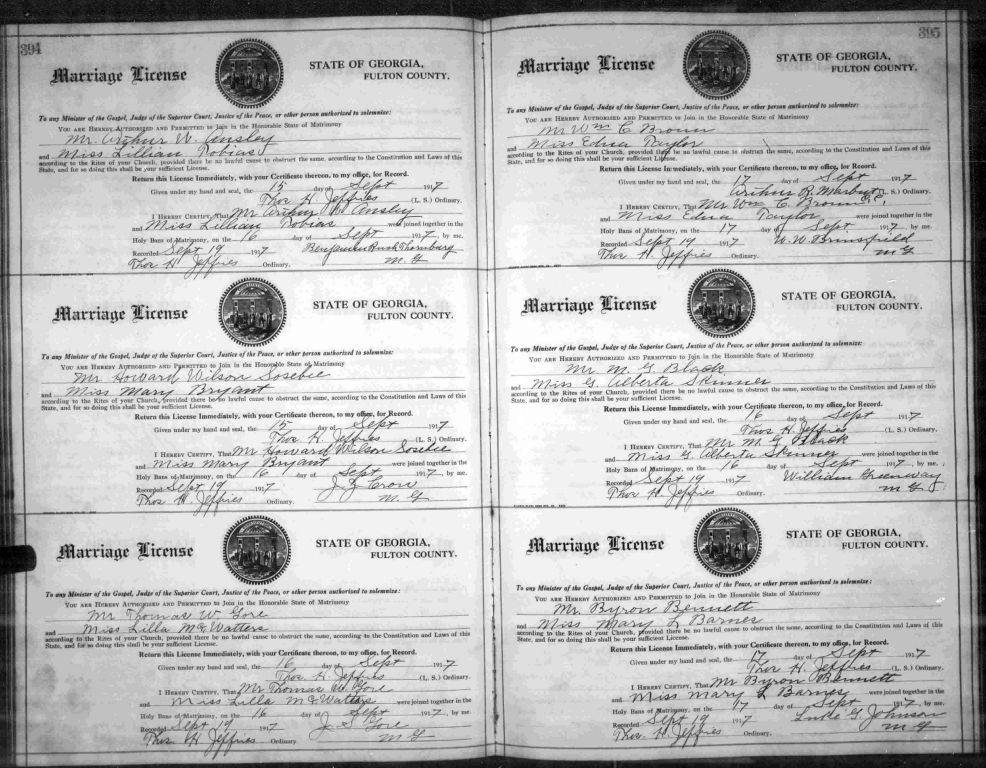 394
Marriage License
STATE OF GEORGIA,
FULTON COUNTY.
To any Minister of the Gospel, Judge of the Superior Court, Justice of the Peace, or other person authorized to solemnize:
YOU ARE HEREBY AUTHORIZED AND PERMITTED to Join in the Honorable State of Matrimony
Mr. Arthur W. Ansley
and Miss Lillian Tobias
according to the Rites of your Church, provided there be no lawful cause to obstruct the same, according to the Constitution and Laws of this
State, and for so doing this shall be your sufficient License.
Return this License Immediately, with your Certificate thereon, to my office, for Record.
Given under my hand and seal, the 15 day of Sept 1917
Thos H. Jeffries (L. S.) Ordinary.
I HEREBY CERTIFY, That Mr Arthur W. Ansley
and Miss Lillian Tobias were joined together in the
Holy Bans of Matrimony, on the 16 day of Sept 1917, by me.
Recorded Sept 19 1917 Benjamin Thornburg
Thos H. Jeffries Ordinary. M. G
Marriage License
STATE OF GEORGIA,
FULTON COUNTY.
To any Minister of the Gospel, Judge of the Superior Court, Justice of the Peace, or other person authorized to solemnize:
YOU ARE HEREBY AUTHORIZED AND PERMITTED to Join in the Honorable State of Matrimony
Mr Howard Wilson Sosebie
and Miss Mary Bryant
according to the Rites of your Church, provided there be no lawful cause to obstruct the same, according to the Constitution and Laws of this
State, and for so doing this shall be your sufficient License.
Return this License Immediately, with your Certificate thereon, to my office, for Record.
Given under my hand and seal, the 15 day of Sept 1917
Thos H. Jeffries (L. S.) Ordinary.
I HEREBY CERTIFY, That Mr Howard Wilson Sosebie
and Miss Mary Bryant were joined together in the
Holy Bans of Matrimony, on the 16 day of Sept 1917, by me.
Recorded Sept 19 1917 Crow
Thos H. Jeffries Ordinary. M. G
Marriage License
STATE OF GEORGIA,
FULTON COUNTY.
To any Minister of the Gospel, Judge of the Superior Court, Justice of the Peace, or other person authorized to solemnize:
YOU ARE HEREBY AUTHORIZED AND PERMITTED to Join in the Honorable State of Matrimony
Mr Thomas W Gore
and Miss Lilla McWatters
according to the Rites of your Church, provided there be no lawful cause to obstruct the same, according to the Constitution and Laws of this
State, and for so doing this shall be your sufficient License.
Return this License Immediately, with your Certificate thereon, to my office, for Record.
Given under my hand and seal, the 16 day of Sept 1917
Thos H. Jeffries (L. S.) Ordinary.
I HEREBY CERTIFY, That Mr Thomas W. Gore
and Miss Lilla McWatters were joined together in the
Holy Bans of Matrimony, on the 16 day of Sept 1917, by me.
Recorded Sept 19 1917 J. S. Gore
Thos H. Jeffries Ordinary. M. G
395
Marriage License
STATE OF GEORGIA,
FULTON COUNTY.
To any Minister of the Gospel, Judge of the Superior Court, Justice of the Peace, or other person authorized to solemnize:
YOU ARE HEREBY AUTHORIZED AND PERMITTED to Join in the Honorable State of Matrimony
Mr Wm C Brown
and Miss Edna Taylor
according to the Rites of your Church, provided there be no lawful cause to obstruct the same, according to the Constitution and Laws of this
State, and for so doing this shall be your sufficient License.
Return this License Immediately, with your Certificate thereon, to my office, for Record.
Given under my hand and seal, the 17 day of Sept 1917
Arthur R. Marbut (L. S.) Ordinary.
I HEREBY CERTIFY, That Mr Wm C. Brown
and Miss Edna Taylor were joined together in the
Holy Bans of Matrimony, on the 17 day of Sept 1917, by me.
Recorded Sept 19 1917 W. W. Brinsfield
Thos H. Jeffries Ordinary. M G
Marriage License
STATE OF GEORGIA,
FULTON COUNTY.
To any Minister of the Gospel, Judge of the Superior Court, Justice of the Peace, or other person authorized to solemnize:
YOU ARE HEREBY AUTHORIZED AND PERMITTED to Join in the Honorable State of Matrimony
Mr. M G Black
and Miss G. Alberta Skinner
according to the Rites of your Church, provided there be no lawful cause to obstruct the same, according to the Constitution and Laws of this
State, and for so doing this shall be your sufficient License.
Return this License Immediately, with your Certificate thereon, to my office, for Record.
Given under my hand and seal, the 16 day of Sept 1917
Thos H. Jeffries (L. S.) Ordinary.
I HEREBY CERTIFY, That Mr M. G Black
and Miss G Alberta Skinner were joined together in the
Holy Bans of Matrimony, on the 16 day of Sept 1917, by me.
Recorded Sept 19 1917 William Greenway
Thos H. Jeffries Ordinary. M G
Marriage License
STATE OF GEORGIA,
FULTON COUNTY.
To any Minister of the Gospel, Judge of the Superior Court, Justice of the Peace, or other person authorized to solemnize:
YOU ARE HEREBY AUTHORIZED AND PERMITTED to Join in the Honorable State of Matrimony
Mr. Byron Bennett
and Miss Mary L Barnes
according to the Rites of your Church, provided there be no lawful cause to obstruct the same, according to the Constitution and Laws of this
State, and for so doing this shall be your sufficient License.
Return this License Immediately, with your Certificate thereon, to my office, for Record.
Given under my hand and seal, the 17 day of Sept 1917
Thos H. Jeffries (L. S.) Ordinary.
I HEREBY CERTIFY, That Mr Byron Bennett
and Miss Mary L Barnes were joined together in the
Holy Bans of Matrimony, on the 17 day of Sept 1917, by me.
Recorded Sept 19 1917 Luke G Johnson
Thos. H. Jeffries Ordinary. M G